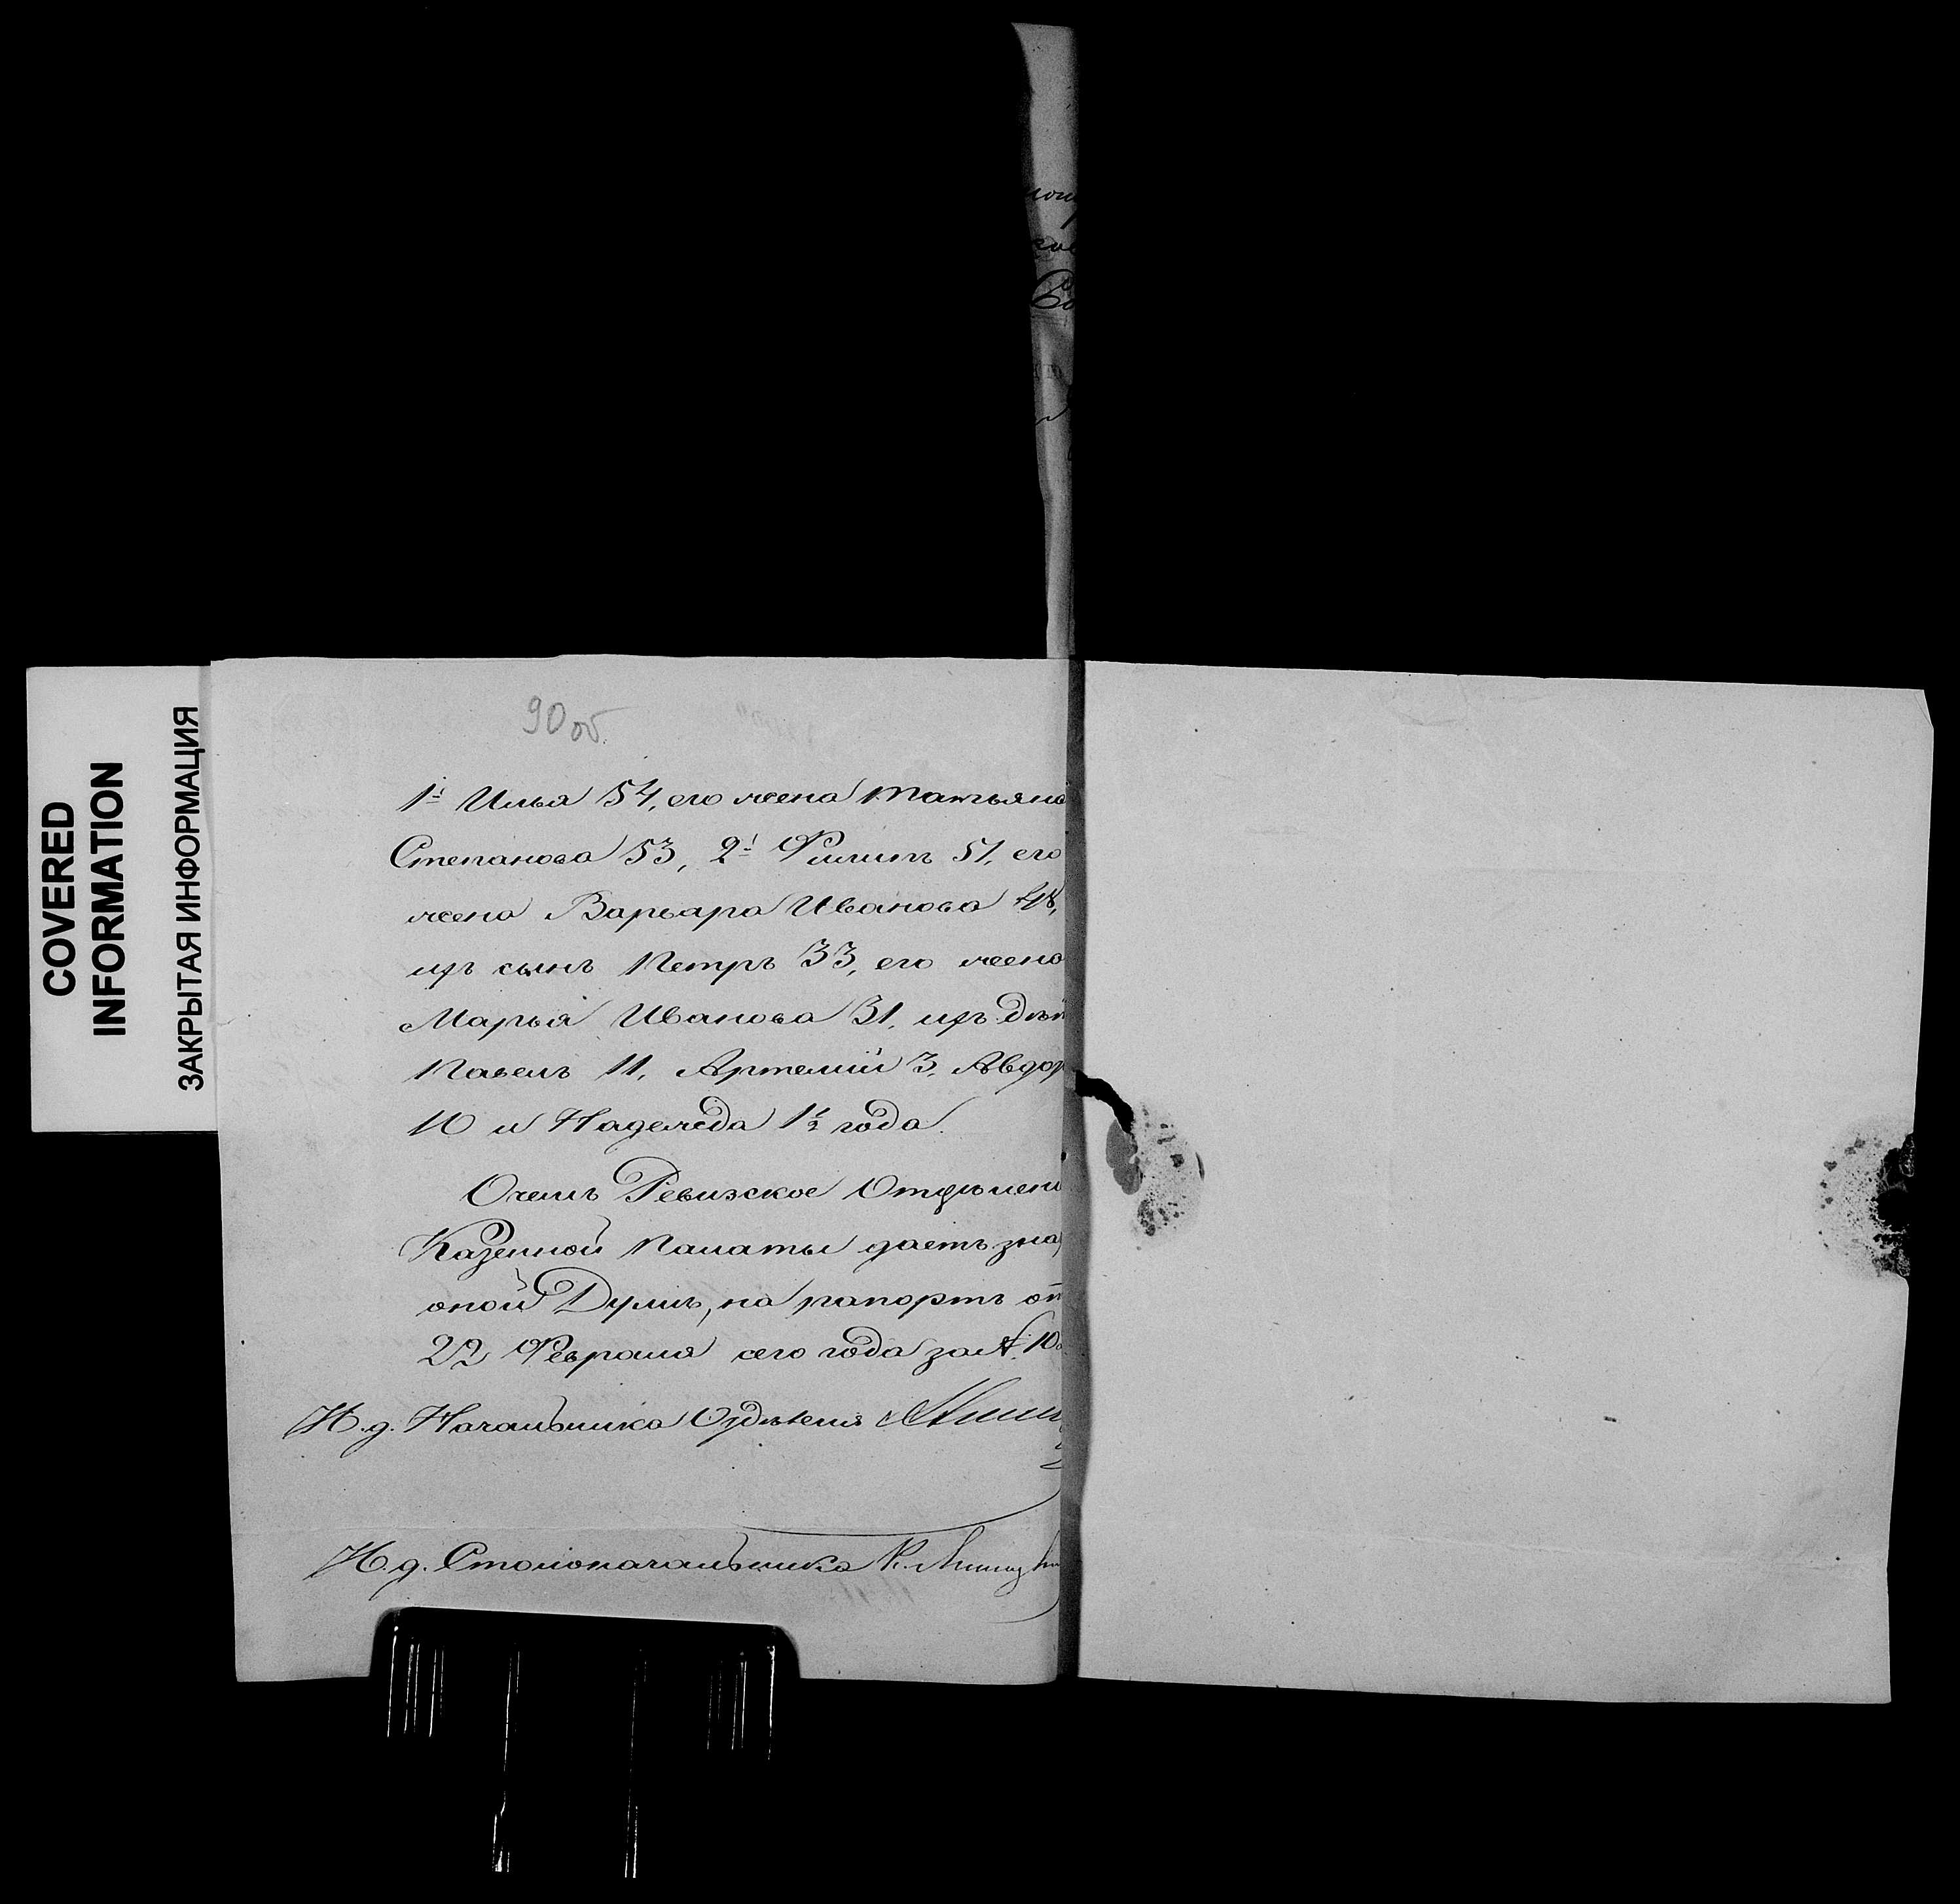 COVERED
INFORMATION
ЗАКРЫТАЯ ИНФОРМАЦИЯ
90 об.
1й Илья 54, его жена Татьяна
Степанова 53, 2й Филипъ 51, его
жена Варвара Иванова 48,
ихъ сынъ Петръ 33, его жена
Марья Иванова 31, ихъ дѣт
Павелъ 11, Артемий 3, Авдо
10 и Надежда 1½ года.
Очемъ Ревизское Отдѣлени
Казенной Палаты даетъ зна
оной Думѣ, на рапортъ от
22 Февраля сего года за №. 10
И.д. Начальника Отдѣления
И.д. Столоначальника К.